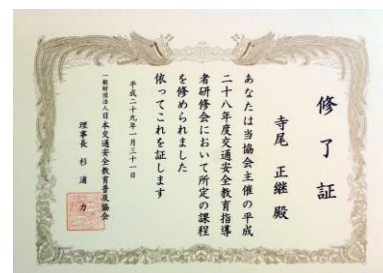 修了証
寺尾 正継 殿
あなたは当協会主催の平成
二十八年度交通安全教育指導
者研修会において所定の課程
を修められました
依ってこれを証します
平成二十九年一月三十一日
一般財団法人日本交通安全教育普及協会
理事長 杉浦 力